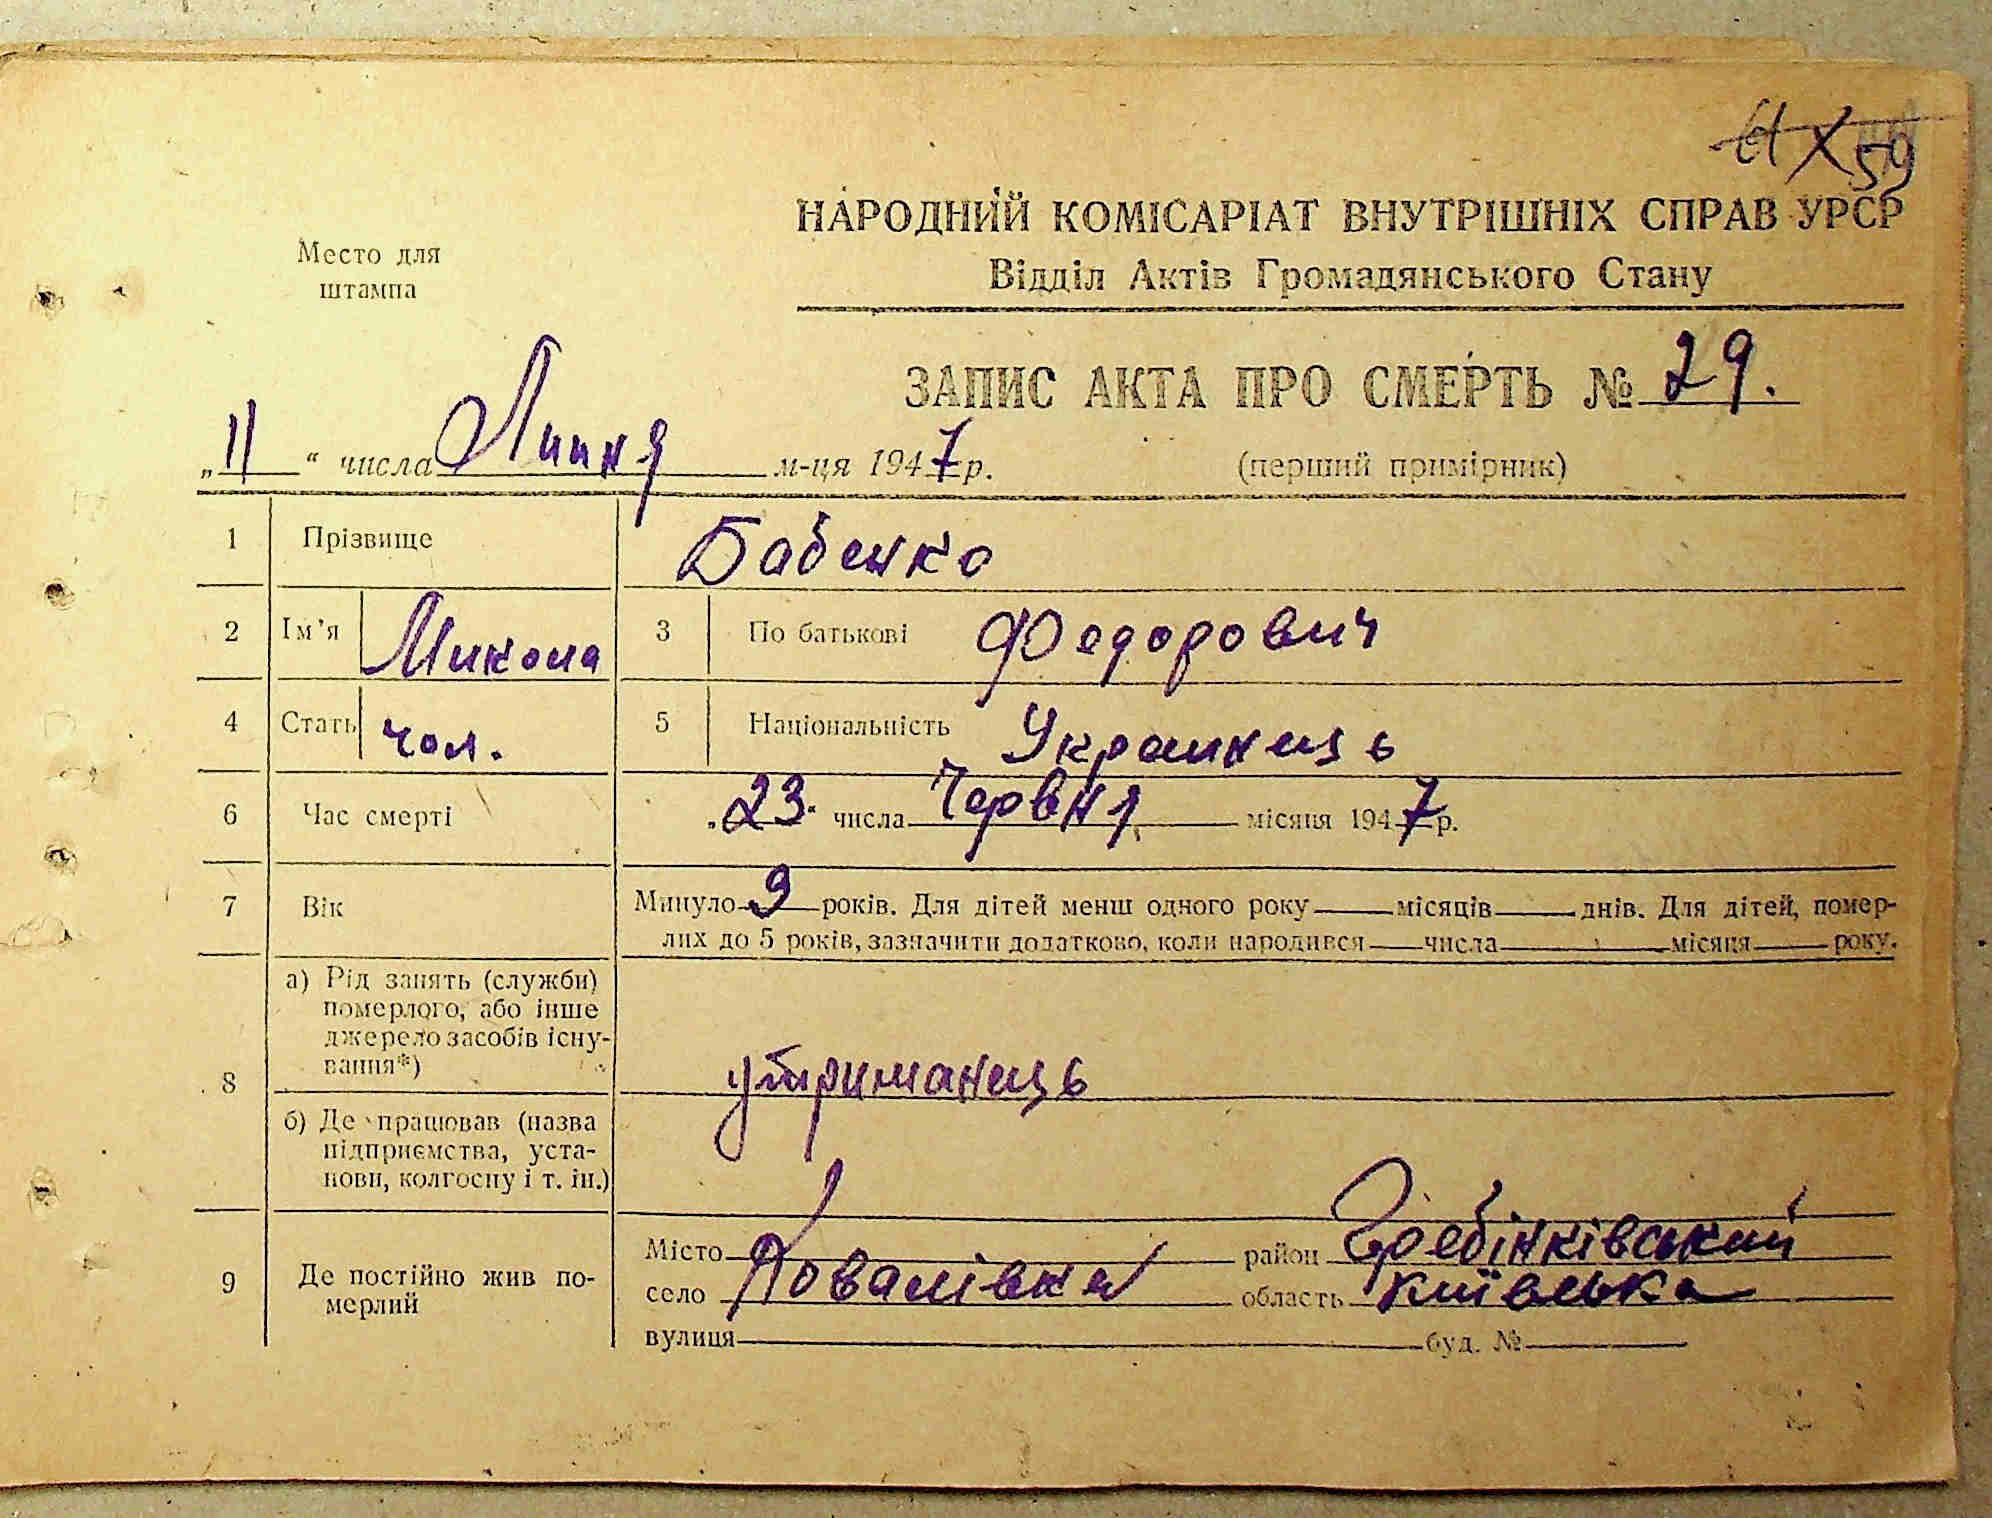 59
НАРОДНИЙ КОМІСАРІАТ ВНУТРІШНІХ СПРАВ УРСР
Место для
штампа
Відділ Актів Громадянського Стану
ЗАПИС АКТА ПРО СМЕРТЬ № 29.
„11“ числа Липня м-ця 1947 р.
(перший примірник)
1 Прізвище Бабенко
2 Ім'я Микола 3 По батькові Федорович
4 Стать чол. 5 Національність Украинець
6 Час смерті „23“ числа Червня місяця 1947 р.
7 Вік Минуло 9 років. Для дітей менш одного року місяців днів. Для дітей, помер-
лих до 5 років, зазначити додатково, коли народився числа місяця року.
8 а) Рід занять (служби)
померлого, або інше
джерело засобів існу-
вання*)
утриманець
б) Де працював (назва
підприємства, уста-
нови, колгоспу і т. ін.)
9 Де постійно жив по-
мерлий
Місто район Гребінківський
село Ковалівка область Київська
вулиця буд. №